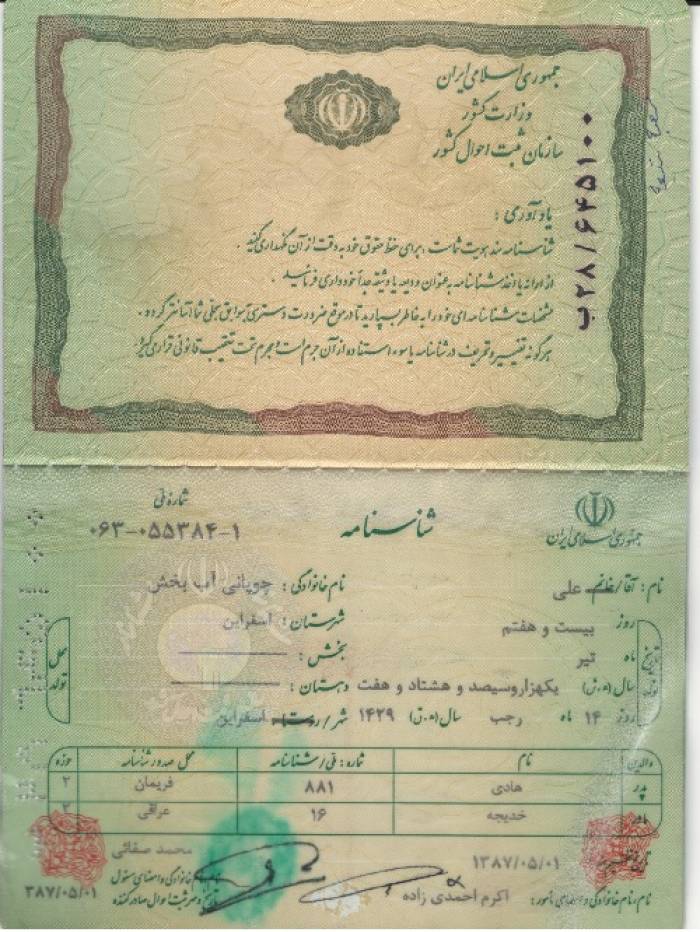 جمهوری اسلامی ایران
وزارت کشور
سازمان ثبت احوال کشور
ب۲۸/۶۴۵۱۰۰
یادآوری :
شناسنامه سند هویت شماست ، برای حفظ حقوق خود به دقت از آن نگهداری کنید .
از ارائه یا اخذ شناسنامه به عنوان ودیعه یا وثیقه جداً خودداری فرمائید .
مشخصات شناسنامه ای خود را به خاطر بسپارید تا در موقع ضرورت دسترسی به سوابق سجلی شما آسانتر گردد .
هرگونه تغییر و تحریف در شناسنامه یا سوء استفاده از آن جرم است و مجرم تحت تعقیب قانونی قرار می گیرد .
جمهوری اسلامی ایران
شناسنامه
شماره ملی
۰۶۳-۰۵۵۳۸۴-۱
نام : آقا/خانم علی
نام خانوادگی : چوپانی آب بخش
تاریخ تولد
روز بیست و هفتم
ماه تیر
سال (ه.ش) یکهزاروسیصد و هشتاد و هفت
روز ۱۴ ماه رجب سال (ه.ق) ۱۴۲۹
محل تولد
شهرستان : اسفراین
بخش :
دهستان :
شهر/روستا اسفراین
والدین نام شماره : ملی/شناسنامه محل صدور شناسنامه حوزه
پدر هادی ۸۸۱ فریمان ۲
مادر خدیجه ۱۶ عراقی ۲
تاریخ تنظیم ۱۳۸۷/۰۵/۰۱
نام، نام خانوادگی و امضای مامور : اکرم احمدی زاده
محمد صفائی
نام، نام خانوادگی و امضای مسئول
تاریخ و مهر ثبت احوال صادرکننده
۳۸۷/۰۵/۰۱